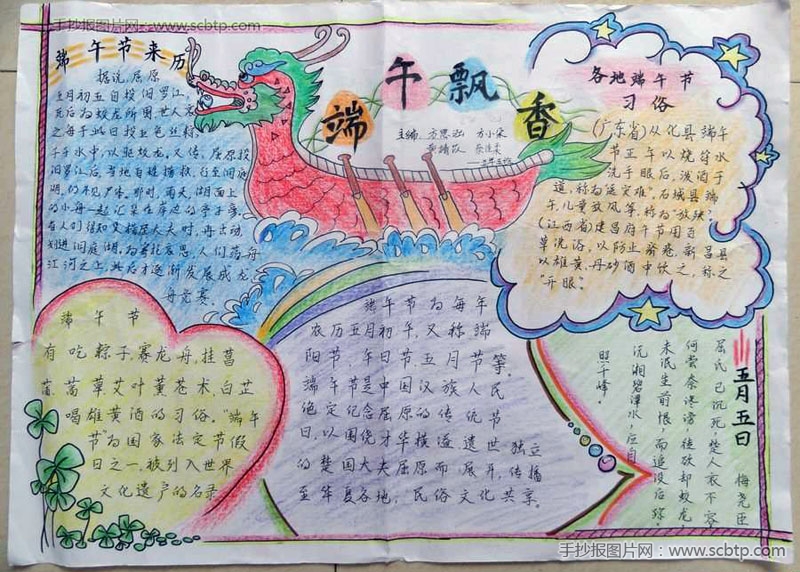 手抄报图片网:www.scbtp.com
端午节来历
据说,屈原
五月初五自投汨罗江,
死后为蛟龙所困,世人哀
之,每于此日投五色丝粽
子于水中,以驱蛟龙。又传,屈原投
汨罗江后,当地百姓
行至洞庭
湖,
那时,
雨天,湖面上
的小舟一起汇集在岸边的亭子旁。
再出动
划进洞庭湖。为寄托哀思,人们荡舟
江河之上,此后才逐渐发展成龙
舟竞赛。
端午飘香
主编:
各地端午节
习俗
(广东省)从化县端午
节正午以烧符水
洗手眼后,泼洒于
道,称为"送灾难"。石城县端
午,儿童放风筝,称为"放殃"。
(江西省)建昌府午节用百
草洗浴,以防止疮疥。新昌县
以雄黄、丹砂酒中饮之,称之
"开眼"。
端午节
有吃粽子,赛龙舟,挂菖
蒲、蒿草、艾叶薰苍术、白芷,
喝雄黄酒的习俗。"端午
节"为国家法定节假
日之一,被列入世界
文化遗产的名录。
端午节为每年
农历五月初午,又称端
阳节,午日节五月节等。
端午节是中国汉族人民
纪念屈原的传统节
日,以围绕才华横溢遗世独立
的楚国大夫屈原而展开,传播
至华夏各地,民俗文化共享。
五月五日
梅尧臣
屈氏已沉死,楚人衣不容。
何尝奈谗谤,徒欲却蛟龙。
未泯生前恨,而追没后踪。
沅湘碧潭水,应自
照千峰。
手抄报图片网:www.scbtp.com